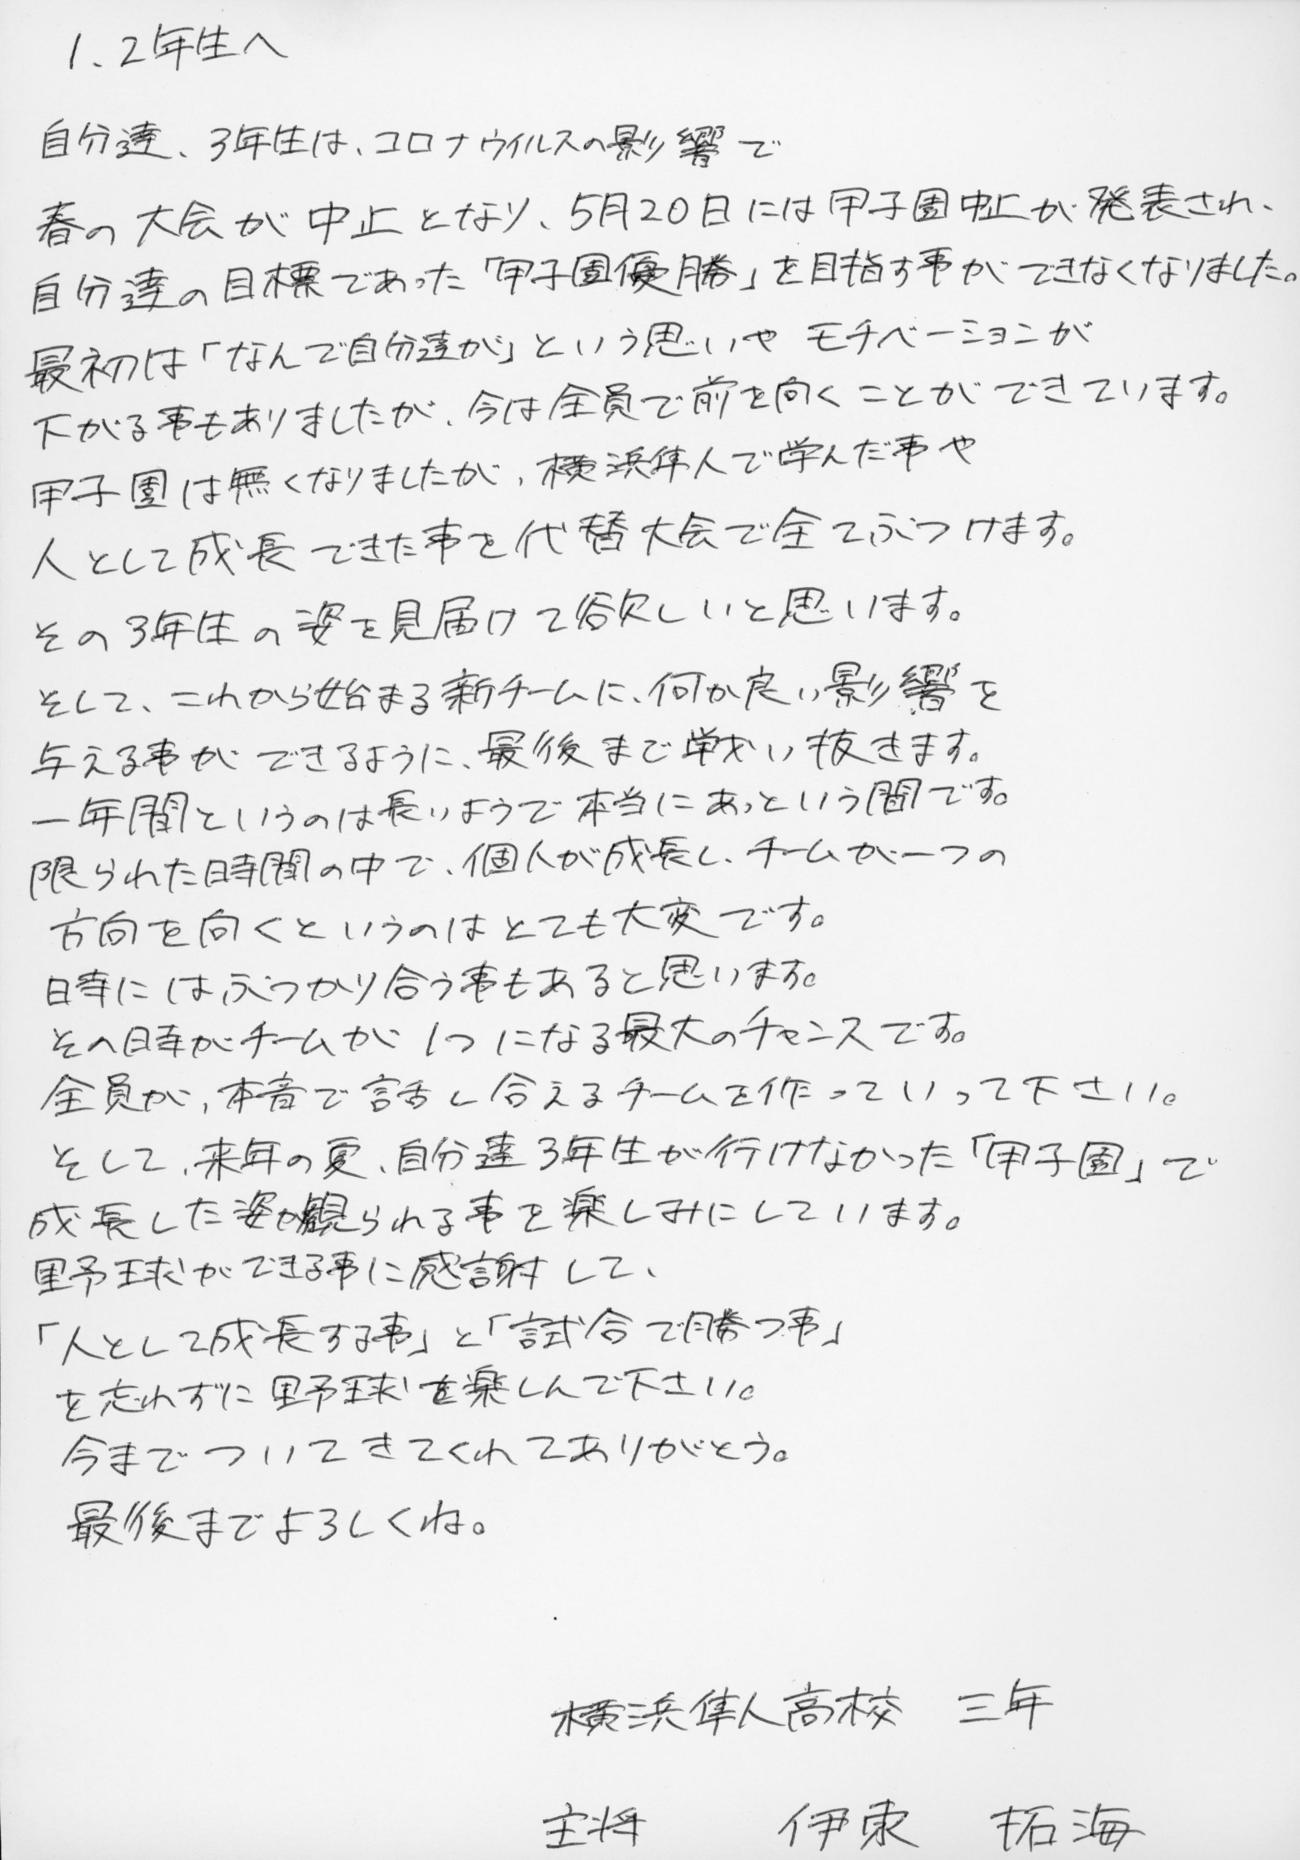 1、2年生へ
自分達、3年生は、コロナウイルスの影響で
春の大会が中止となり、5月20日には甲子園中止が発表され、
自分達の目標であった「甲子園優勝」を目指す事ができなくなりました。
最初は「なんで自分達が」という思いやモチベーションが
下がる事もありましたが、今は全員で前を向くことができています。
甲子園は無くなりましたが、横浜隼人で学んだ事や
人として成長できた事を代替大会で全てぶつけます。
その3年生の姿を見届けて欲しいと思います。
そして、これから始まる新チームに、何か良い影響を
与える事ができるように、最後まで戦い抜きます。
一年間というのは長いようで本当にあっという間です。
限られた時間の中で、個人が成長し、チームが一つの
方向を向くというのはとても大変です。
時にはぶつかり合う事もあると思います。
その時がチームが1つになる最大のチャンスです。
全員が、本音で話し合えるチームを作っていって下さい。
そして、来年の夏、自分達3年生が行けなかった「甲子園」で
成長した姿が観られる事を楽しみにしています。
野球ができる事に感謝して、
「人として成長する事」と「試合で勝つ事」
を忘れずに野球を楽しんで下さい。
今までついてきてくれてありがとう。
最後までよろしくね。
横浜隼人高校 三年
主将 伊東 拓海